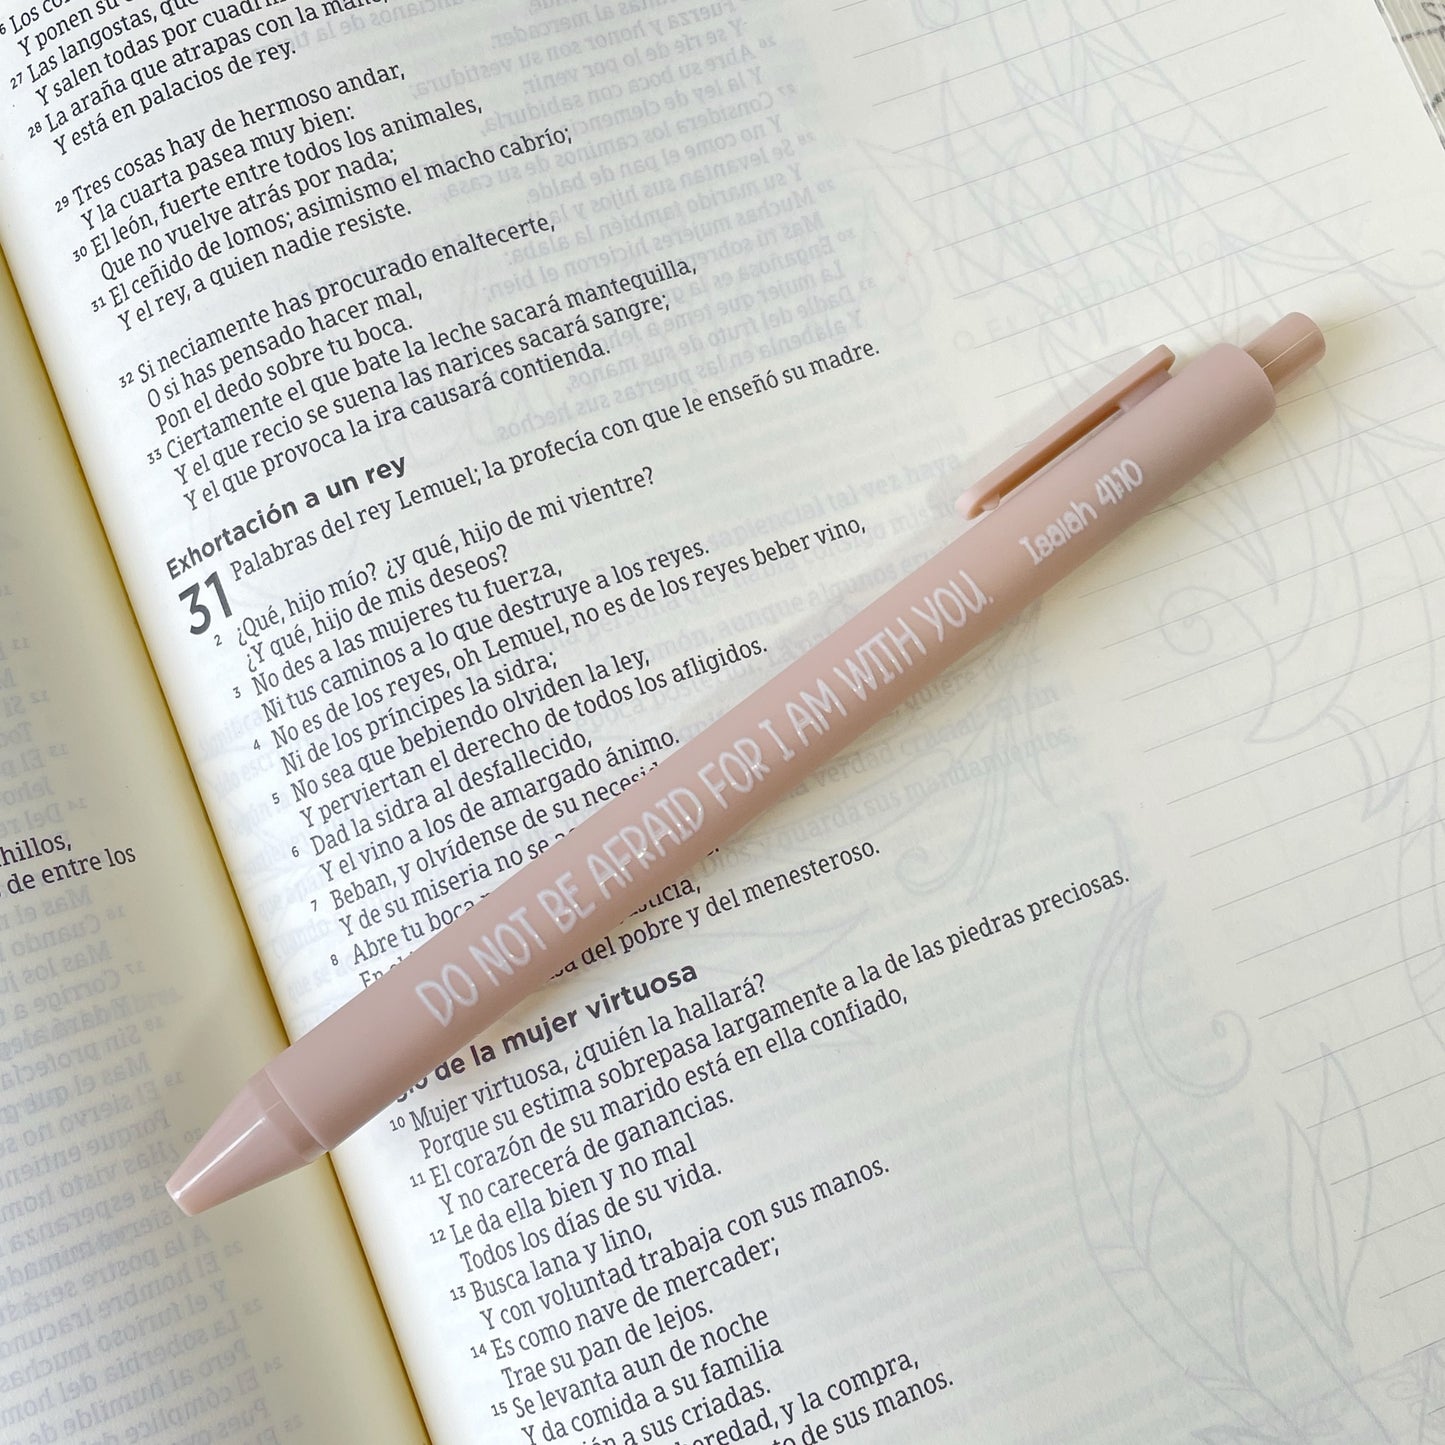 Y ponen su
27 Las langostas, que
Y salen todas por
28 La araña que atrapas con la
Y está en palacios de rey.
29 Tres cosas hay de hermoso andar,
Y la cuarta pasea muy bien:
30 El león, fuerte entre todos los animales,
Que no vuelve atrás por nada;
31 El ceñido de lomos; asimismo el macho cabrío;
Y el rey, a quien nadie resiste.
32 Si neciamente has procurado enaltecerte,
O si has pensado hacer mal,
Pon el dedo sobre tu boca.
33 Ciertamente el que bate la leche sacará mantequilla,
Y el que recio se suena las narices sacará sangre;
Y el que provoca la ira causará contienda.
Exhortación a un rey
31 Palabras del rey Lemuel; la profecía con que le enseñó su madre.
2 ¿Qué, hijo mío? ¿y qué, hijo de mi vientre?
¿Y qué, hijo de mis deseos?
3 No des a las mujeres tu fuerza,
Ni tus caminos a lo que destruye a los reyes.
4 No es de los reyes, oh Lemuel, no es de los reyes beber vino,
Ni de los príncipes la sidra;
5 No sea que bebiendo olviden la ley,
Y perviertan el derecho de todos los afligidos.
6 Dad la sidra al desfallecido,
Y el vino a los de amargado ánimo.
7 Beban, y olvídense de su
Y de su miseria no se
8 Abre tu boca
del pobre y del menesteroso.
de la mujer virtuosa
10 Mujer virtuosa, ¿quién la hallará?
Porque su estima sobrepasa largamente a la de las piedras preciosas.
11 El corazón de su marido está en ella confiado,
Y no carecerá de ganancias.
12 Le da ella bien y no mal
Todos los días de su vida.
13 Busca lana y lino,
Y con voluntad trabaja con sus manos.
14 Es como nave de mercader;
Trae su pan de lejos.
15 Se levanta aun de noche
Y da comida a su familia
a sus criadas.
y la compra,
de sus manos.
de entre los
DO NOT BE AFRAID FOR I AM WITH YOU.
Isaiah 41:10